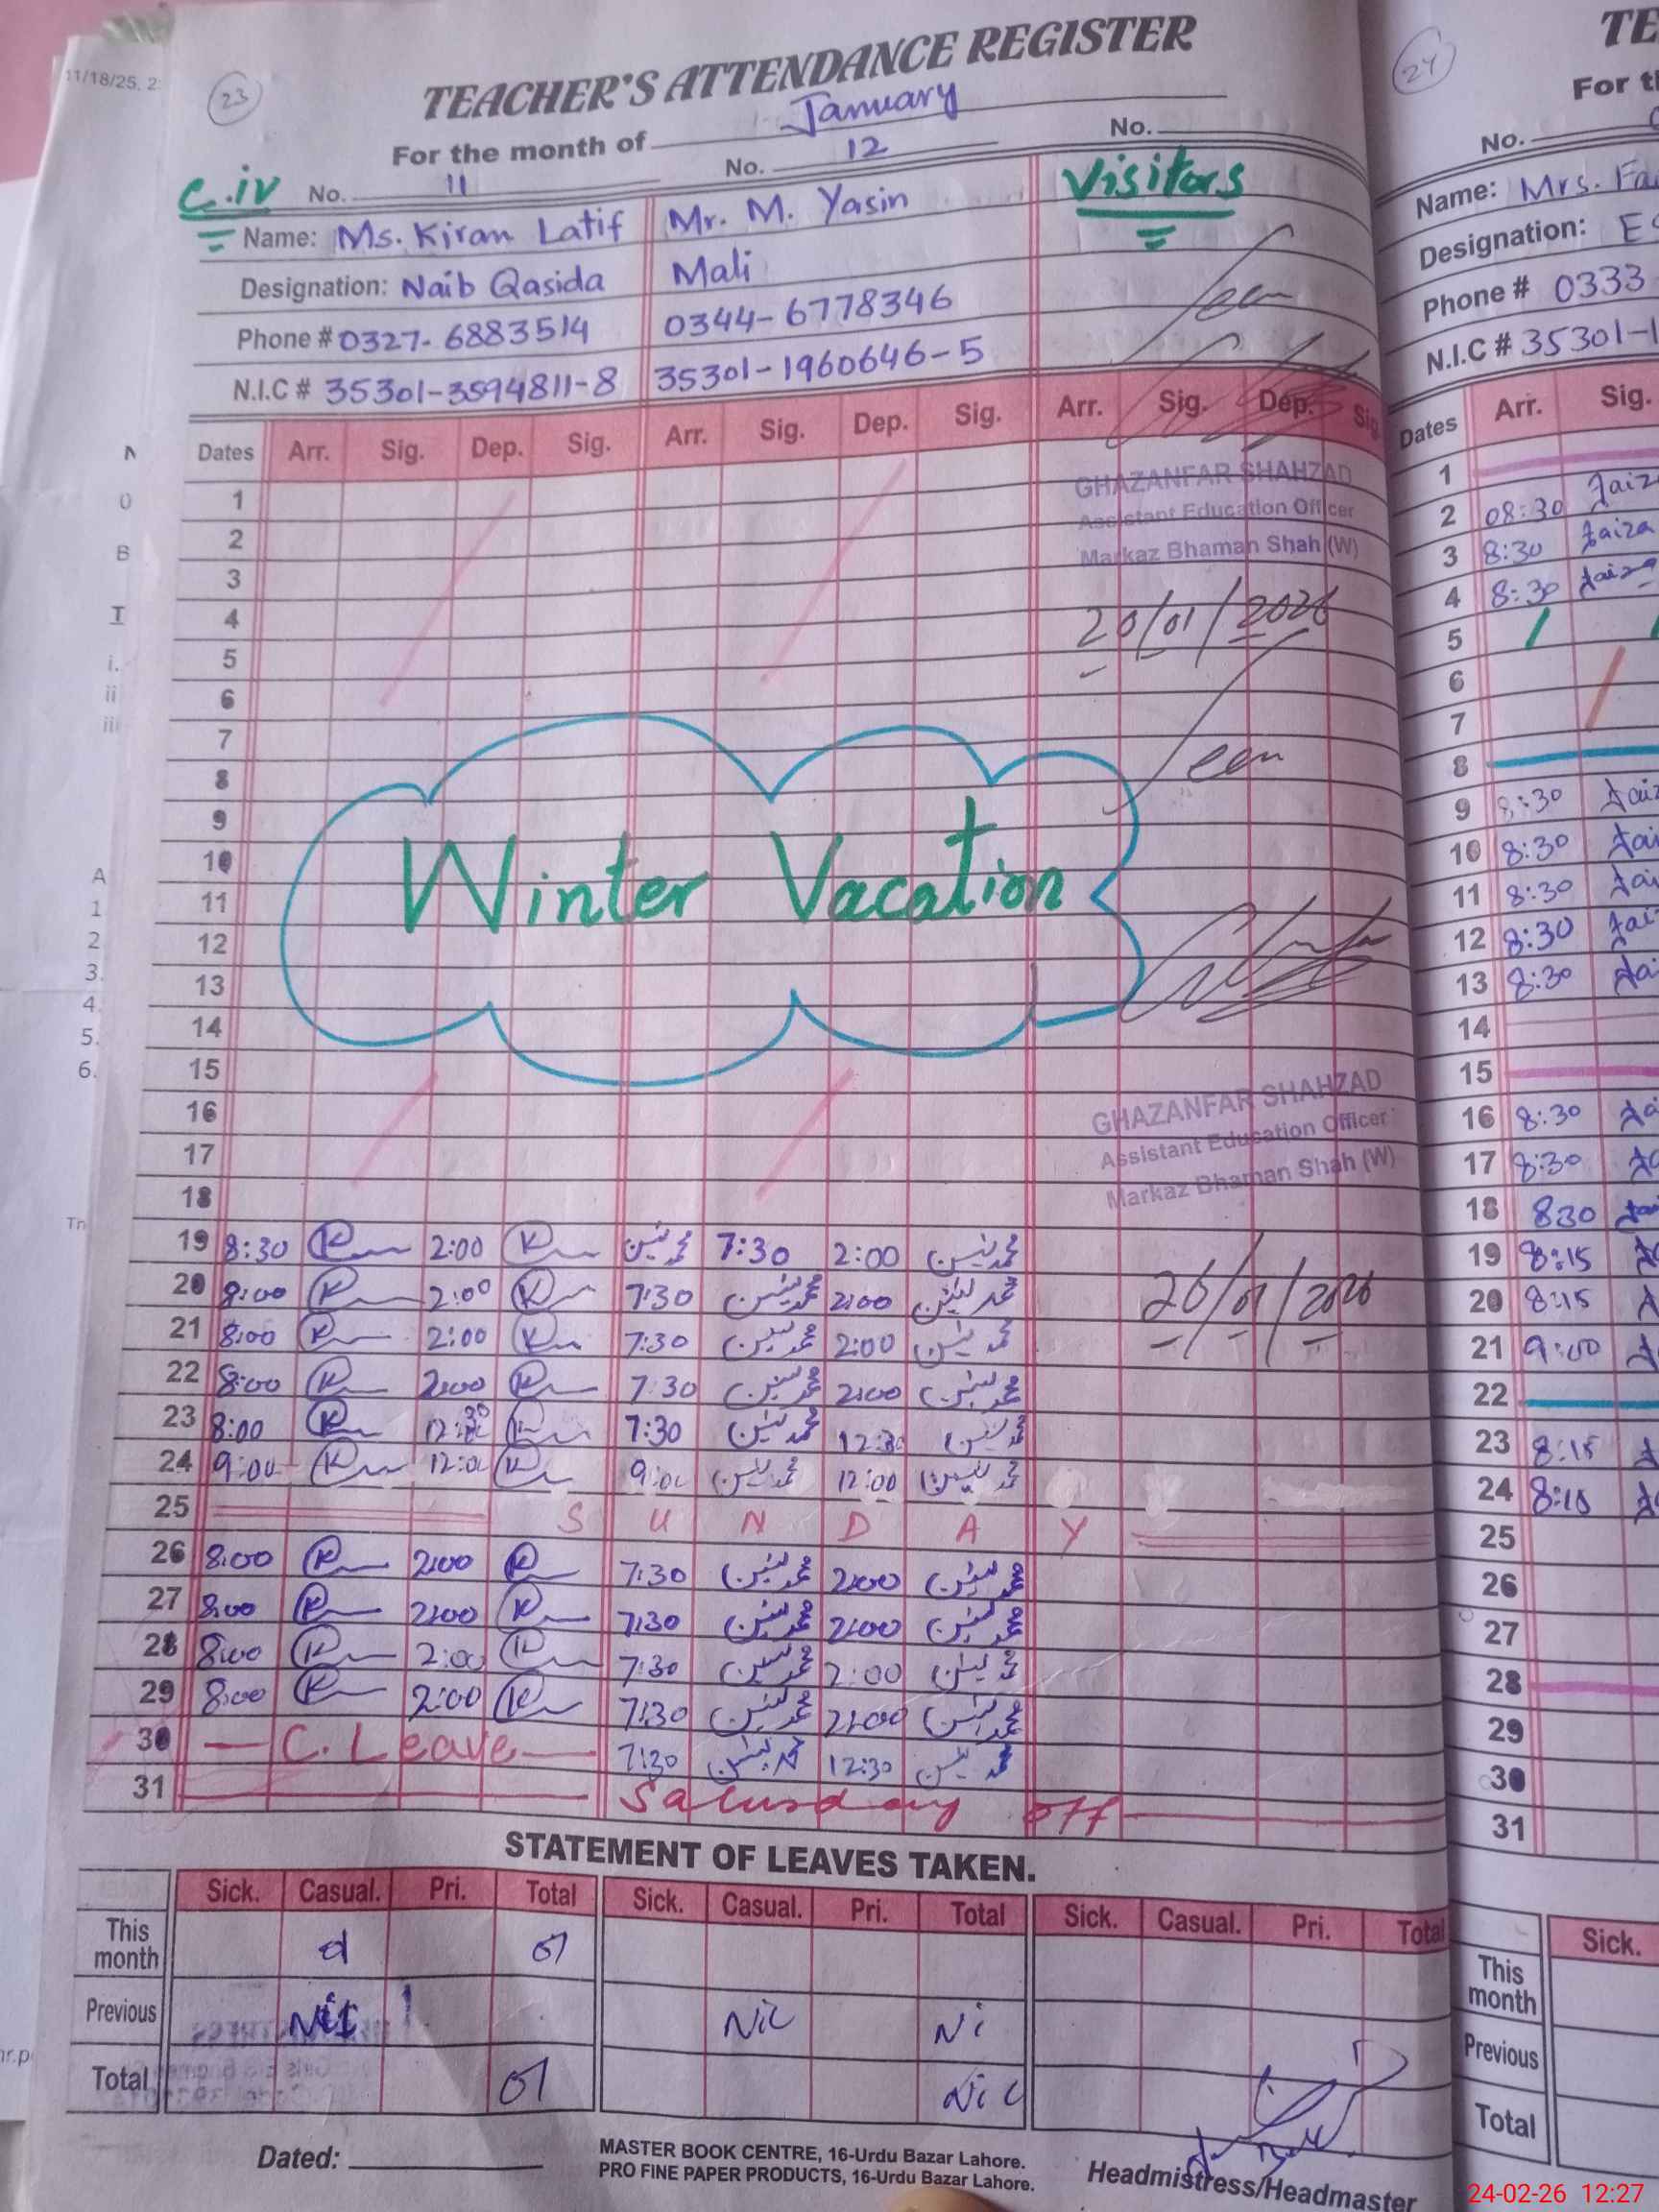 11/18/25, 2:
23
TEACHER'S ATTENDANCE REGISTER
For the month of January
C.iv No. 11 No. 12 No.
Name: Ms. Kiran Latif Mr. M. Yasin Visitors
Designation: Naib Qasida Mali
Phone # 0327-6883514 0344-6778346 Seen
N.I.C # 35301-3594811-8 35301-1960646-5
Dates Arr. Sig. Dep. Sig. Arr. Sig. Dep. Sig. Arr. Sig. Dep. Sig.
GHAZANFAR SHAHZAD
Assistant Education Officer
Markaz Bhaman Shah (W)
20/01/2026
Seen
1
2
3
4
5
6
7
8
9
10
11
12
13
14
15
16
17
18
Winter Vacation
GHAZANFAR SHAHZAD
Assistant Education Officer
Markaz Bhaman Shah (W)
26/01/2026
19 8:30 2:00 محمد یٰسین 7:30 2:00 محمد یٰسین
20 8:00 2:00 7:30 محمد یٰسین 2:00 محمد یٰسین
21 8:00 2:00 7:30 محمد یٰسین 2:00 محمد یٰسین
22 8:00 2:00 7:30 محمد یٰسین 2:00 محمد یٰسین
23 8:00 12:30 7:30 محمد یٰسین 12:30 محمد یٰسین
24 9:00 12:00 9:00 محمد یٰسین 12:00 محمد یٰسین
25 S U N D A Y
26 8:00 2:00 7:30 محمد یٰسین 2:00 محمد یٰسین
27 8:00 2:00 7:30 محمد یٰسین 2:00 محمد یٰسین
28 8:00 2:00 7:30 محمد یٰسین 2:00 محمد یٰسین
29 8:00 2:00 7:30 محمد یٰسین 2:00 محمد یٰسین
30 C. Leave 7:30 محمد یٰسین 12:30 محمد یٰسین
31 Saturday off
STATEMENT OF LEAVES TAKEN.
Sick. Casual. Pri. Total Sick. Casual. Pri. Total Sick. Casual. Pri. Total
This month 01 01
Previous Nil Nil Ni
Total 01 Nil
Dated:
MASTER BOOK CENTRE, 16-Urdu Bazar Lahore.
PRO FINE PAPER PRODUCTS, 16-Urdu Bazar Lahore.
Headmistress/Headmaster
24
TE
For t
No.
Name: Mrs. Fa
Designation: ES
Phone # 0333
N.I.C # 35301-1
Dates Arr. Sig.
1
2 08:30 Faiza
3 8:30 Faiza
4 8:30 Faiza
5
6
7
8
9 8:30 Faiz
10 8:30 Fai
11 8:30 Fai
12 8:30 Fai
13 8:30 Fa
14
15
16 8:30 Fa
17 8:30
18 830
19 8:15
20 8:15
21 9:00
22
23 8:15
24 8:15
25
26
27
28
29
30
31
Sick.
This month
Previous
Total
24-02-26 12:27